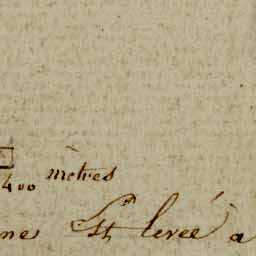 400 mètres
ne St levée a